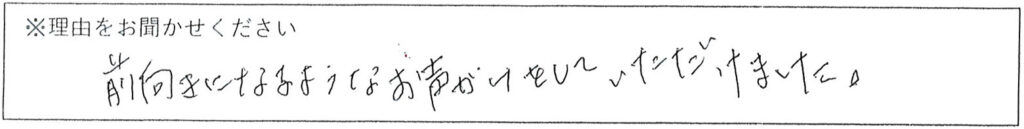 ※理由をお聞かせください
前向きになるようなお声がけをしていただけました。